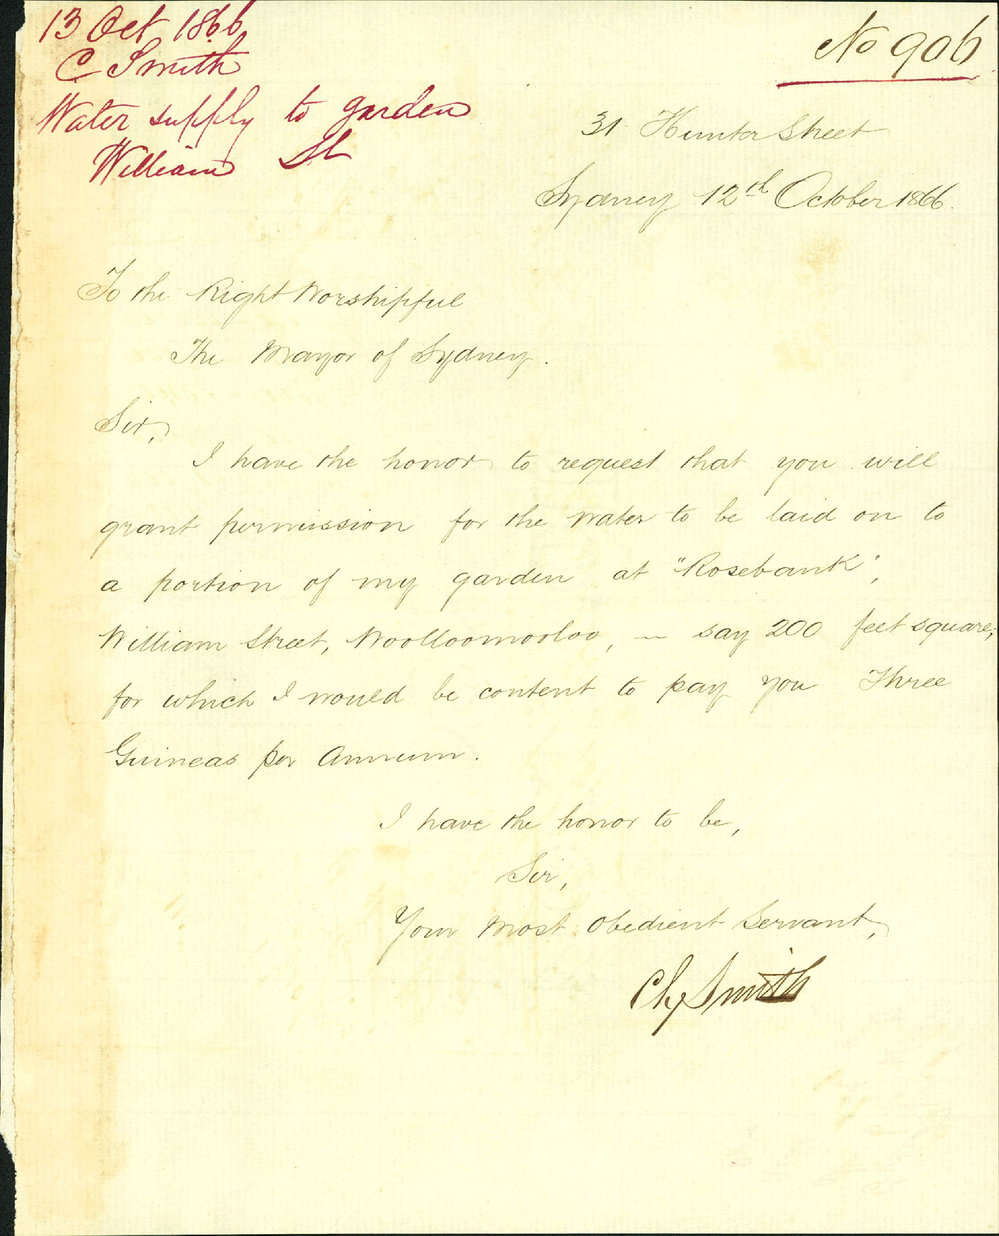 13 Oct 1866
C Smith
Water supply to garden
William St
No 906
31 Hunter Street
Sydney 12th October 1866.
To the Right Worshipful
The Mayor of Sydney.
Sir,
I have the honor to request that you will
grant permission for the water to be laid on to
a portion of my garden at "Rosebank",
William Street, Woolloomooloo, — say 200 feet square;
for which I would be content to pay you Three
Guineas per Annum.
I have the honor to be,
Sir,
Your Most Obedient Servant,
Chs Smith